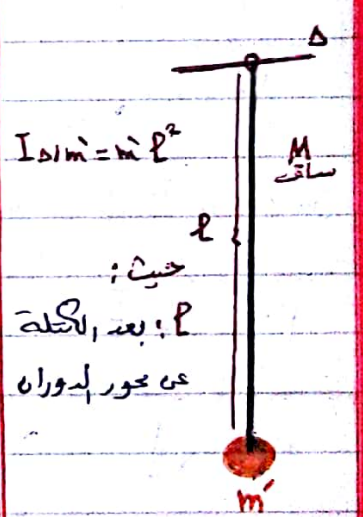 Δ
I Δ/m' = m' ℓ²
M
ساق
ℓ
حيث:
ℓ: بعد الكتلة
عن محور الدوران
m'